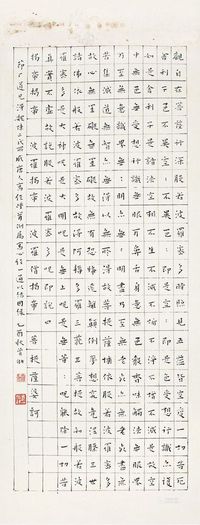 觀自在菩薩行深般若波羅蜜多時照見五蘊皆空度一切苦厄
舍利子色不異空空不異色色即是空空即是色受想行識亦復
如是舍利子是諸法空相不生不滅不垢不淨不增不減是故空
中無色無受想行識無眼耳鼻舌身意無色聲香味觸法無眼界
乃至無意識界無無明亦無無明盡乃至無老死亦無老死盡無
苦集滅道無智亦無得以無所得故菩提薩埵依般若波羅蜜多
故心無罣礙無罣礙故無有恐怖遠離顛倒夢想究竟涅槃三世
諸佛依般若波羅蜜多故得阿耨多羅三藐三菩提故知般若波
羅蜜多是大神咒是大明咒是無上咒是無等等咒能除一切苦
真實不虛故說般若波羅蜜多咒即說咒曰
揭帝揭帝 波羅揭帝 波羅僧揭帝 菩提薩婆訶